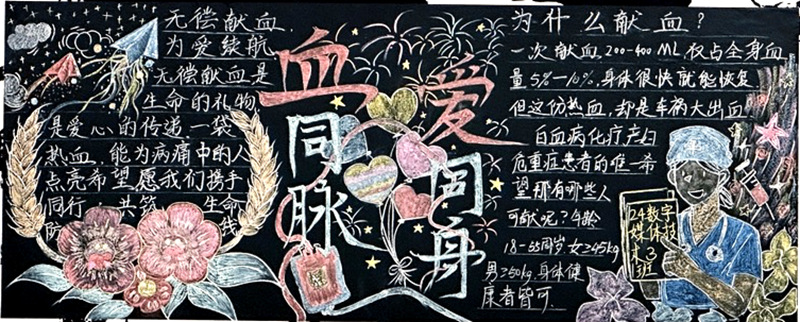 无偿献血,
为爱续航
无偿献血是
生命的礼物
是爱心的传递一袋
热血,能为病痛中的人
点亮希望愿我们携手
同行,共筑 生命
防 线
血
同
脉
爱
同
身
为什么献血?
一次献血200-400ML仅占全身血
量5%-10%,身体很快就能恢复
但这份热血,却是车祸大出血
白血病化疗产妇
危重症患者的唯一希
望那有哪些人
可献呢?年龄
18-55周岁女≥45kg
男≥50kg,身体健
康者皆可.
24数字
媒体技
术3
班